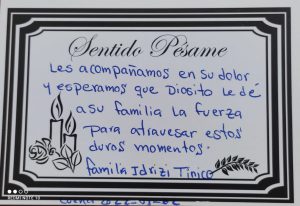 Sentido Pésame
Les acompañamos en su dolor
y esperamos que Diosito le dé
a su familia la fuerza
para atravesar estos
duros momentos.
familia Idrizi Tinico